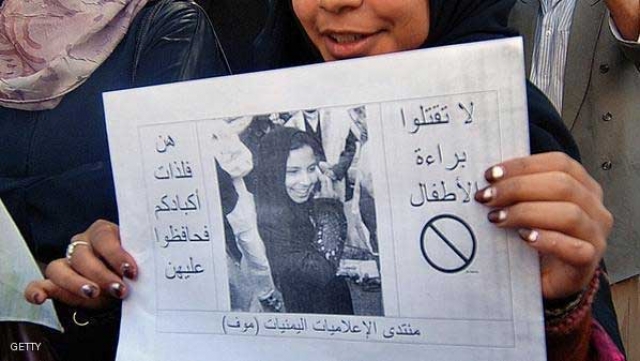 لا تقتلوا
براءة
الأطفال
هن
فلذات
أكبادكم
فحافظوا
عليهن
منتدى الإعلاميات اليمنيات (موف)
GETTY